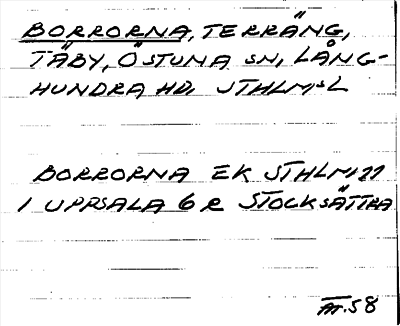 BORRORNA, TERRÄNG,
TÄBY, ÖSTUNA SN, LÅNG-
HUNDRA HD, STHLMSL
BORRORNA EK STHLM 77
I UPPSALA 6 R STOCKSÄTTRA
58